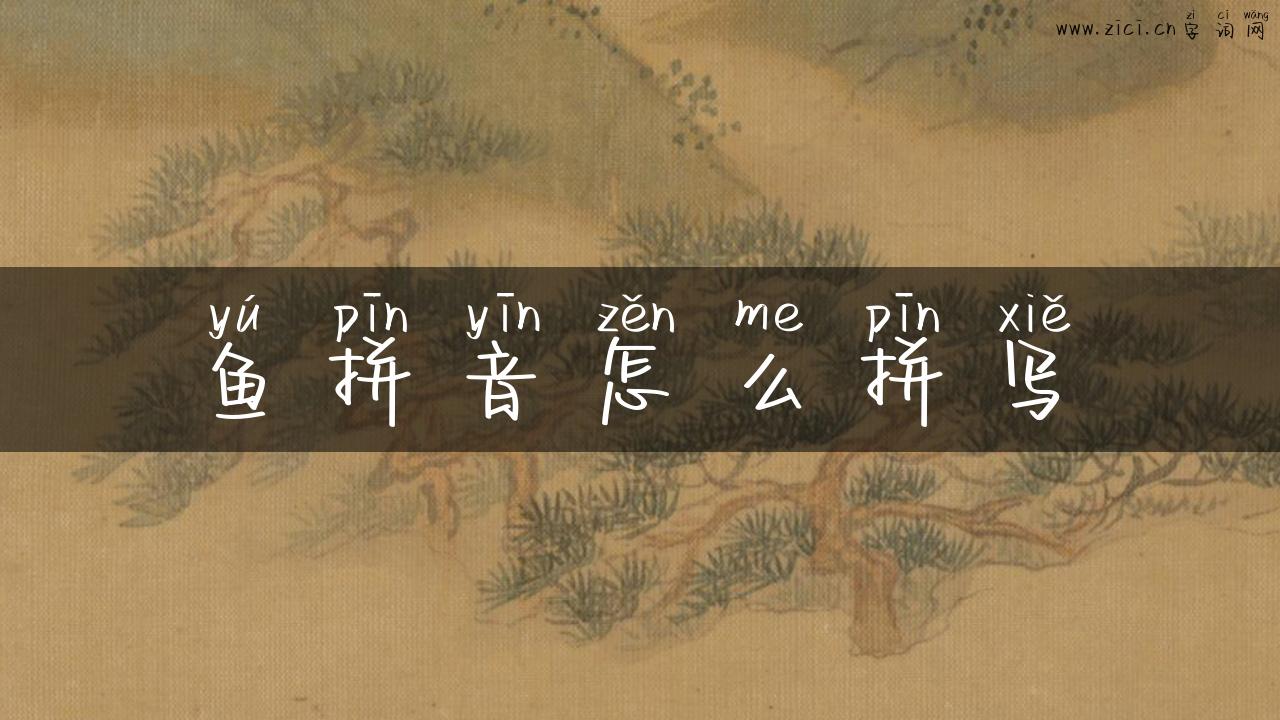 zì cí wǎng
www.zici.cn 字词网
yú pīn yīn zěn me pīn xiě
鱼拼音怎么拼写